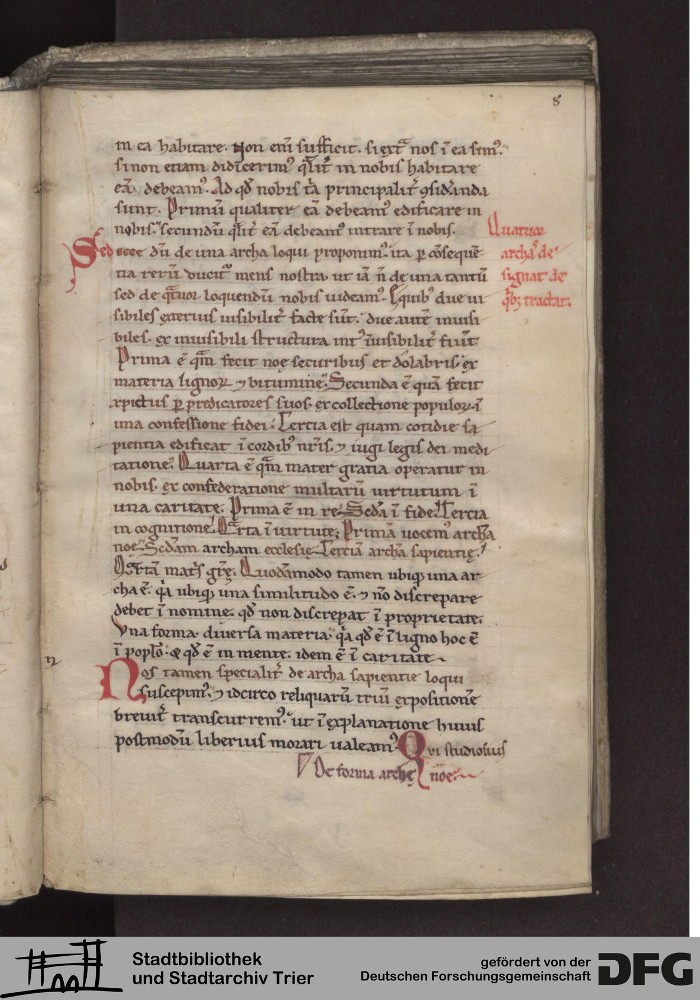 8
in ea habitare. Non eni̅ sufficit. si ext̅ nos i̅ ea sim᷒.
si non etiam didicerim᷒ q̅lit̅ in nobis habitare
ea̅ debeam᷒. Ad q̅d nobis t̅a principalit̅ ꝯsid̅anda
sunt. Primu̅ qualiter ea̅ debeam᷒ edificare in
nobis. secundu̅ q̅lit̅ ea̅ debeam᷒ intrare i̅ nobis.
Sed ecce du̅ de una archa loqui proponim᷒. ita p̲ co̅seque̅
tia reru̅ ducit᷒ mens nostra. ut ia̅ n̅ de una tantu̅
sed de q̅tuor loquendu̅ nobis uideam᷒. E quib᷒ due ui
sibiles exterius uisibilit̅ facte su̅t. due aute̅ inuisi
biles. ex inuisibili structura int᷒ i̅uisibilit̅ fiu̅t.
Prima e̅ q̅m fecit noe securibus et dolabris. ex
materia lignoꝝ ⁊ bitumine. Secunda e̅ qua̅ fecit
xpictus p̲ predicatores suos. ex collectione populoꝝ. i̅
una confessione fidei. Tercia est quam cotidie sa
pientia edificat i̅ cordib᷒ nr̅is. ⁊ iugi legis dei medi
tatione. Quarta e̅ q̅m mater gratia operatur in
nobis. ex confederatione multaru̅ uirtutum i̅
una caritate. Prima e̅ in re. Secd̅a i̅ fide. Tercia
in cognitione. Q̅rta i̅ uirtute. Prima̅ uocem᷒ archa̅
noe. Secd̅am archam ecclesie. Tercia̅ archa̅ sapientie.
Q̅rta̅ mat̅s gr̅e. Quoda̅modo tamen ubiqꝫ una ar
cha e̅. q̅a ubiqꝫ una similitudo e̅. ⁊ no̅ discrepare
debet i̅ nomine. q̅d non discrepat i̅ proprietate.
Vna forma. diuersa materia. q̅a q̅d e̅ i̅ ligno hoc e̅
i̅ pop̅lo. & q̅d e̅ in mente. idem e̅ i̅ caritate
Nos tamen specialit̅ de archa sapientie loqui
suscepim᷒. ⁊ idcirco reliquaru̅ triu̅ expositione̅
breuit̅ transcurrem᷒. ut i̅ explanatione huius
postmodu̅ liberius morari ualeam᷒. Qvi studiosius
De forma arche noe.
Quatuor
archas de
signat de
q̅bꝫ tractat.
Stadtbibliothek
und Stadtarchiv Trier
gefördert von der
Deutschen Forschungsgemeinschaft
DFG